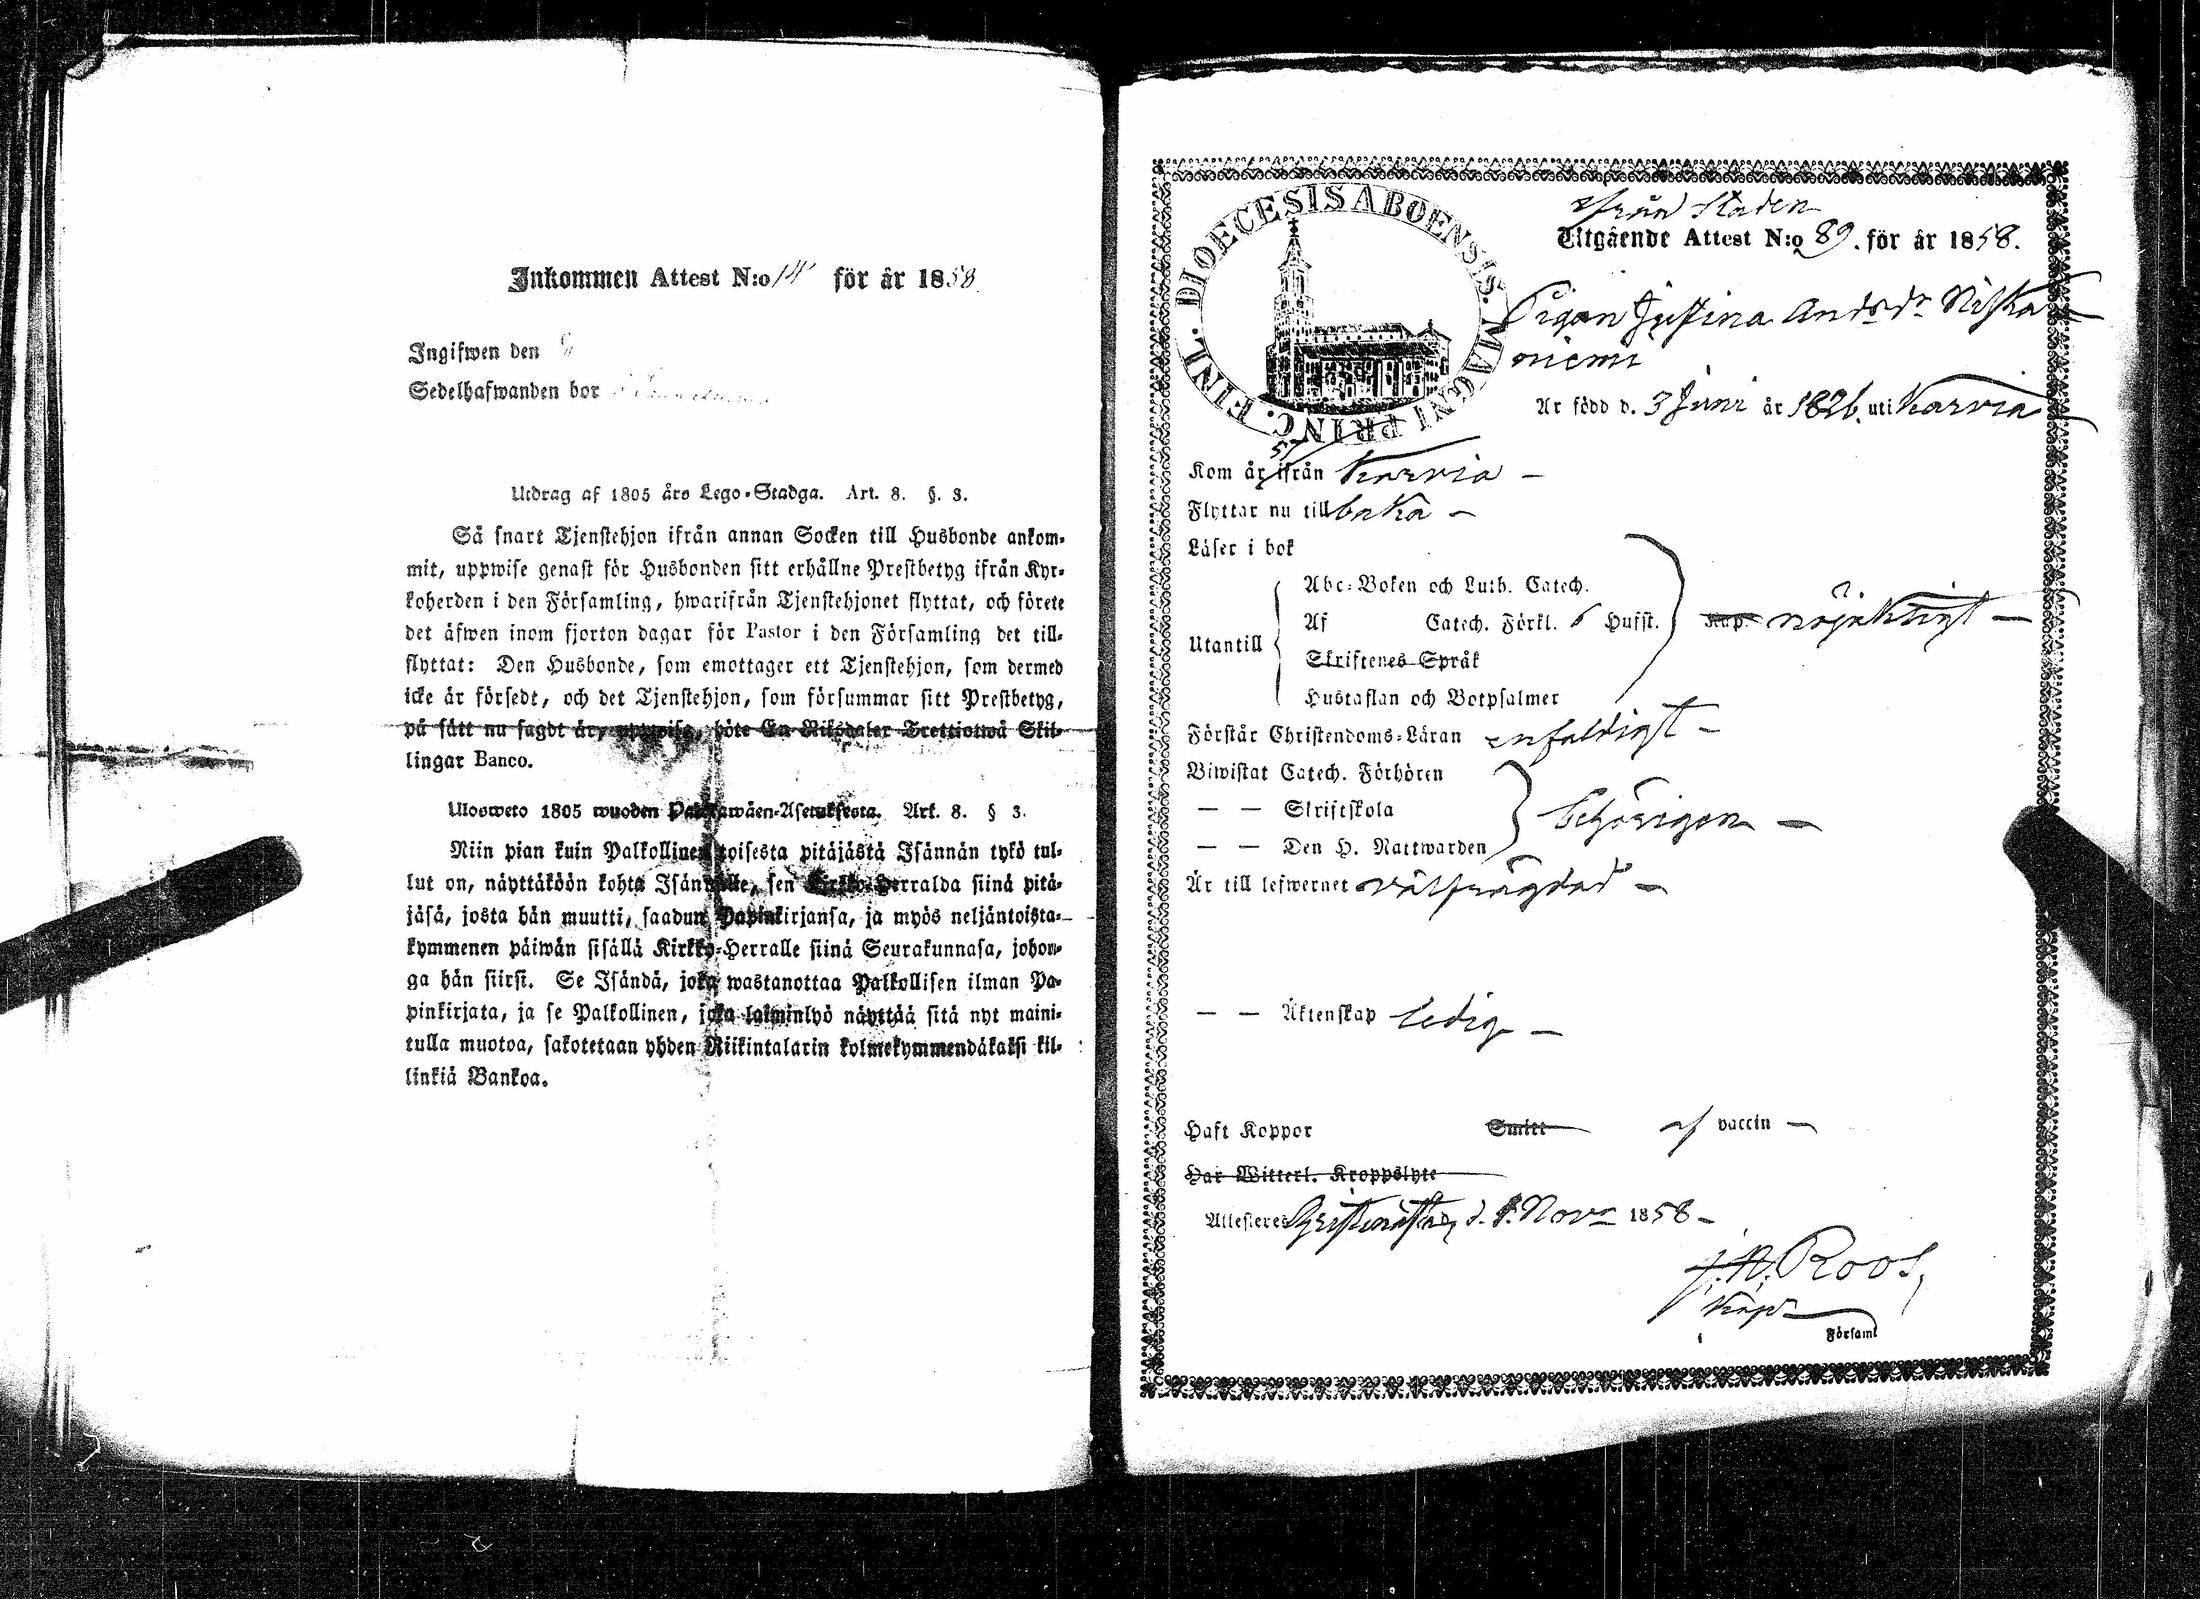 Inkommen Attest N:o 14 för år 1858
Ingifwen den
Sedelhafwanden bor
Utdrag af 1805 års Lego-Stadga. Art. 8. §. 3.
Så snart Tjenstehjon ifrån annan Socken till Husbonde ankom-
mit, uppwise genast för Husbonden sitt erhållne Prestbetyg ifrån Kyr-
koherden i den Församling, hwarifrån Tjenstehjonet flyttat, och förete
det äfwen inom fjorton dagar för Pastor i den Församling det till-
flyttat: Den Husbonde, som emottager ett Tjenstehjon, som dermed
icke är försedt, och det Tjenstehjon, som försummar sitt Prestbetyg,
på sätt nu sagdt är, uppwisa, böte En Riksdaler Trettiotwå Skil-
lingar Banco.
Ulosweto 1805 wuoden Palkkawäen-Asetuksesta. Art. 8. § 3.
Niin pian kuin Palkollinen toisesta pitäjästä Isännän tykö tul-
lut on, näyttäköön kohta Isännälle, sen Kirkko-Herralda siinä pitä-
jäsä, josta hän muutti, saadun Papinkirjansa, ja myös neljäntoista-
kymmenen päiwän sisällä Kirkko-Herralle siinä Seurakunnasa, johon-
ga hän siirsi. Se Isändä, joka wastanottaa Palkollisen ilman Pa-
pinkirjata, ja se Palkollinen, joka laiminlyö näyttää sitä nyt maini-
tulla muotoa, sakotetaan yhden Riikintalarin kolmekymmendäkaksi kil-
linkiä Bankoa.
DIOECESIS ABOENSIS. MAGNI PRINC. FINL.
ifrån Staden
Utgående Attest N:o 89. för år 1858.
Pigan Justina Andsdr Niska
niemi
Är född d. 3 Juni år 1826. uti Karvia
Kom år 57 ifrån Karvia —
Flyttar nu tillbaka —
Läser i bok
Abc-Boken och Luth. Catech.
Utantill Af Catech. Förkl. 6 Hufst. nöjaktigt —
Skriftenes Språk
Hustaflan och Botpsalmer
Förstår Christendoms-Läran enfaldigt —
Biwistat Catech. Förhören
— — Skriftskola behörigen —
— — Den H. Nattwarden
Är till lefwernet välfrägdad —
— — Äktenskap ledig —
Haft Koppor Smitt af vaccin —
Har Witterl. Kroppslyte
Attesteres Christinestad, d. 1. Novr 1858 —
J. N. Roos,
Kapl.
Församl